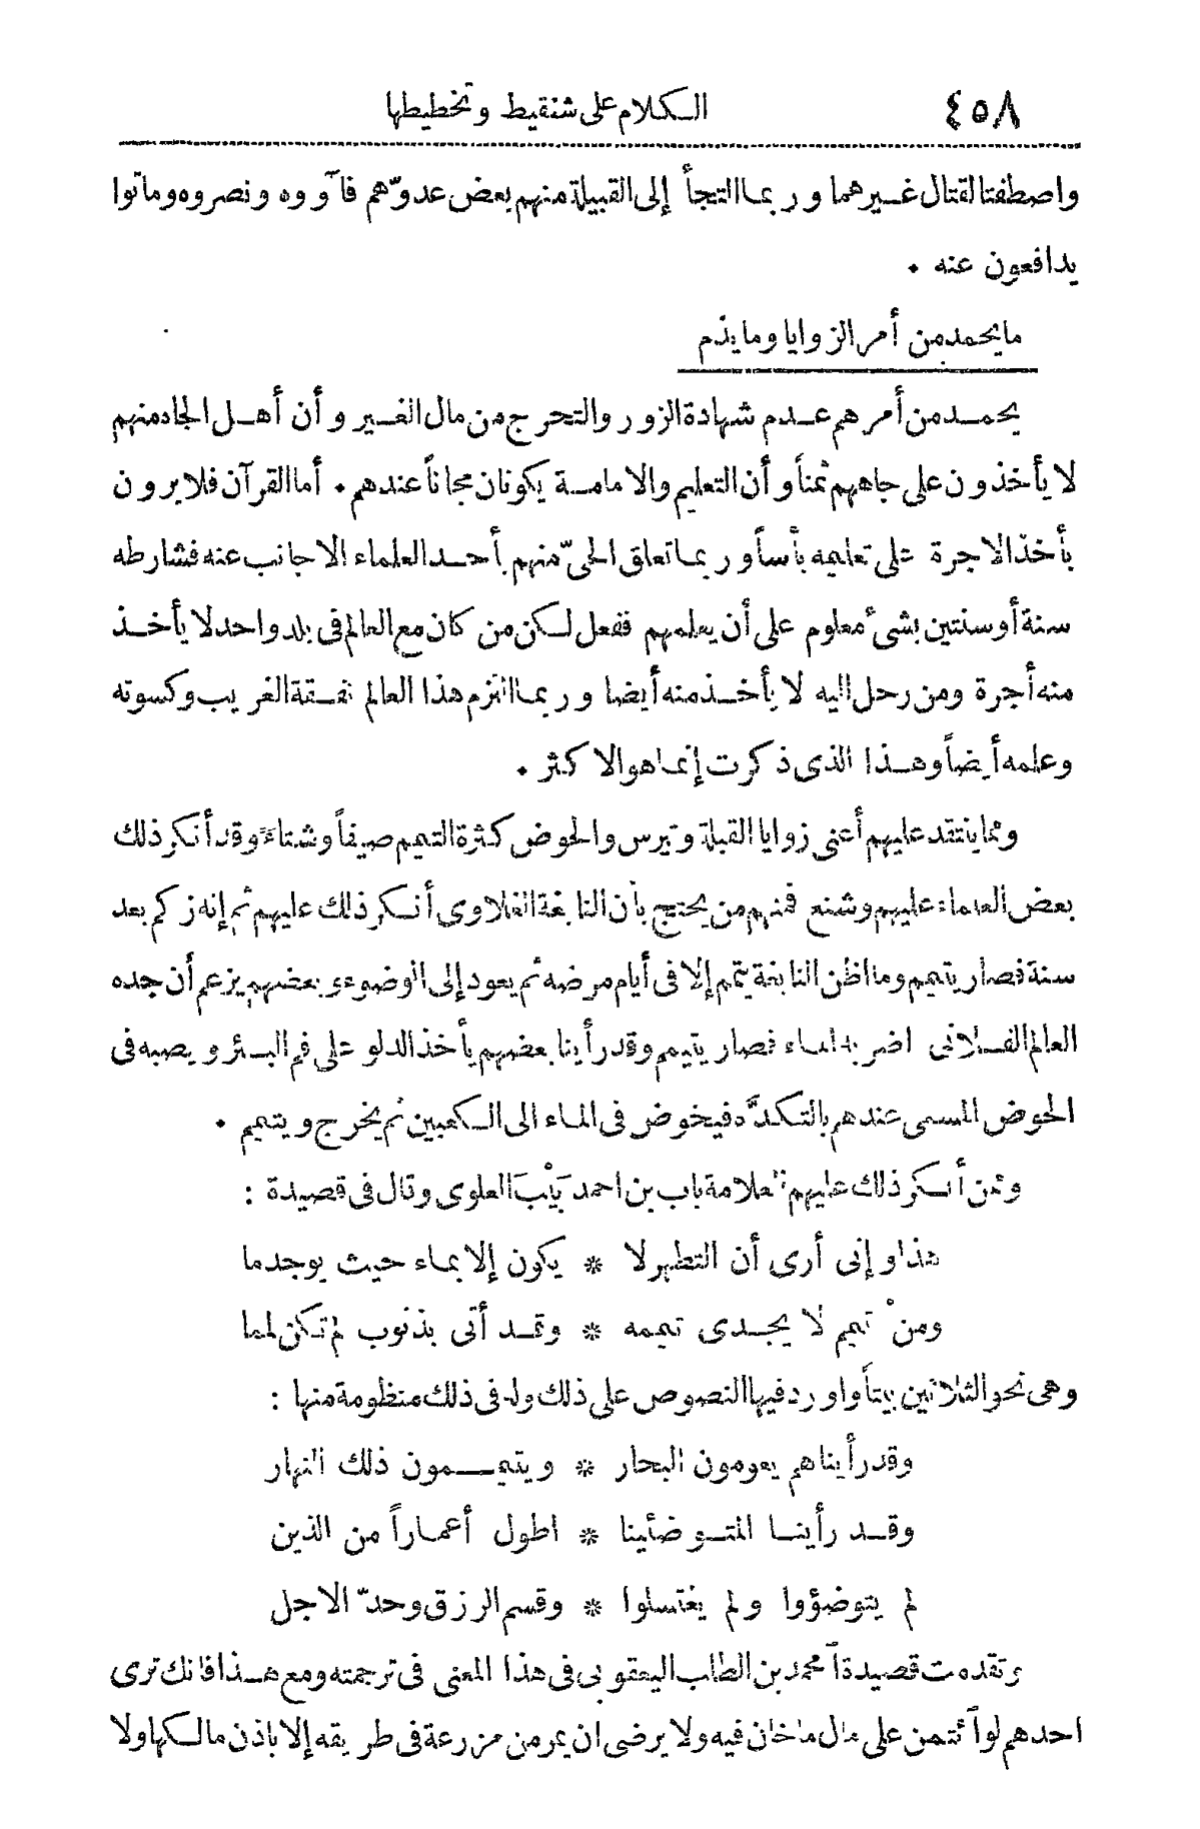 ٤٥٨ الكلام على شنقيط وتخطيطها
واصطفتا لقتال غيرهما وربما التجأ إلى القبيلة منهم بعض عدوّهم فآووه ونصروه وماتوا
يدافعون عنه .
ما يحمد من أمر الزوايا وما يذم
يحمد من أمرهم عدم شهادة الزور والتحرج من مال الغير وأن أهل الجاه منهم
لا يأخذون على جاههم ثمناً وأن التعليم والامامة يكونان مجاناً عندهم . أما القرآن فلا يرون
بأخذ الاجرة على تعليمه بأساً وربما تعلق الحىّ منهم بأحد العلماء الاجانب عنه فشارطه
سنة أو سنتين بشىء معلوم على أن يعلمهم ففعل لكن من كان مع العالم فى بلد واحد لا يأخذ
منه أجرة ومن رحل اليه لا يأخذ منه أيضا وربما التزم هذا العالم نفقة الغريب وكسوته
وعلمه أيضاً وهذا الذى ذكرت إنما هو الاكثر .
ومما ينتقد عليهم أعنى زوايا القبلة وتيرس والحوض كثرة التيمم صيفاً وشتاءً وقد أنكر ذلك
بعض العلماء عليهم وشنع فمنهم من يحتج بأن النابغة الغلاوى أنكر ذلك عليهم ثم إنه زكم بعد
سنة فصار يتيمم وما اظن النابغة يتيمم إلا فى أيام مرضه ثم يعود إلى الوضوء وبعضهم يزعم أن جده
العالم الفلانى اضر به الماء فصار يتيمم وقد رأينا بعضهم يأخذ الدلو على فم البئر ويصبه فى
الحوض المسمى عندهم بالتكدَّه فيخوض فى الماء الى الكعبين ثم يخرج ويتيمم .
وممن أنكر ذلك عليهم العلامة باب بن احمد بَيْبَ العلوى وقال فى قصيدة :
هذا وإنى أرى أن التطهر لا * يكون إلا بماء حيث يوجد ما
ومنْ تيمم لا يجدى تيممه * وقد أتى بذنوب لم تكن لمما
وهى نحو الثلاثين بيتاً واورد فيها النصوص على ذلك وله فى ذلك منظومة منها :
وقد رأيناهم يعومون البحار * ويتيممون ذلك النهار
وقد رأينا المتوضئينا * اطول أعماراً من الذين
لم يتوضؤوا ولم يغتسلوا * وقسم الرزق وحدّ الاجل
وتقدمت قصيدة آمحمد بن الطلب اليعقوبى فى هذا المعنى فى ترجمته ومع هذا فانك ترى
احدهم لو آئتمن على مال ما خان فيه ولا يرضى ان يمر من مزرعة فى طريقه إلا باذن مالكها ولا